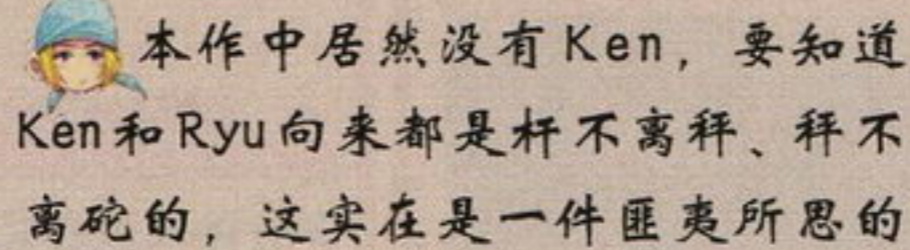 本作中居然没有Ken，要知道
Ken和Ryu向来都是杆不离秤、秤不
离砣的，这实在是一件匪夷所思的